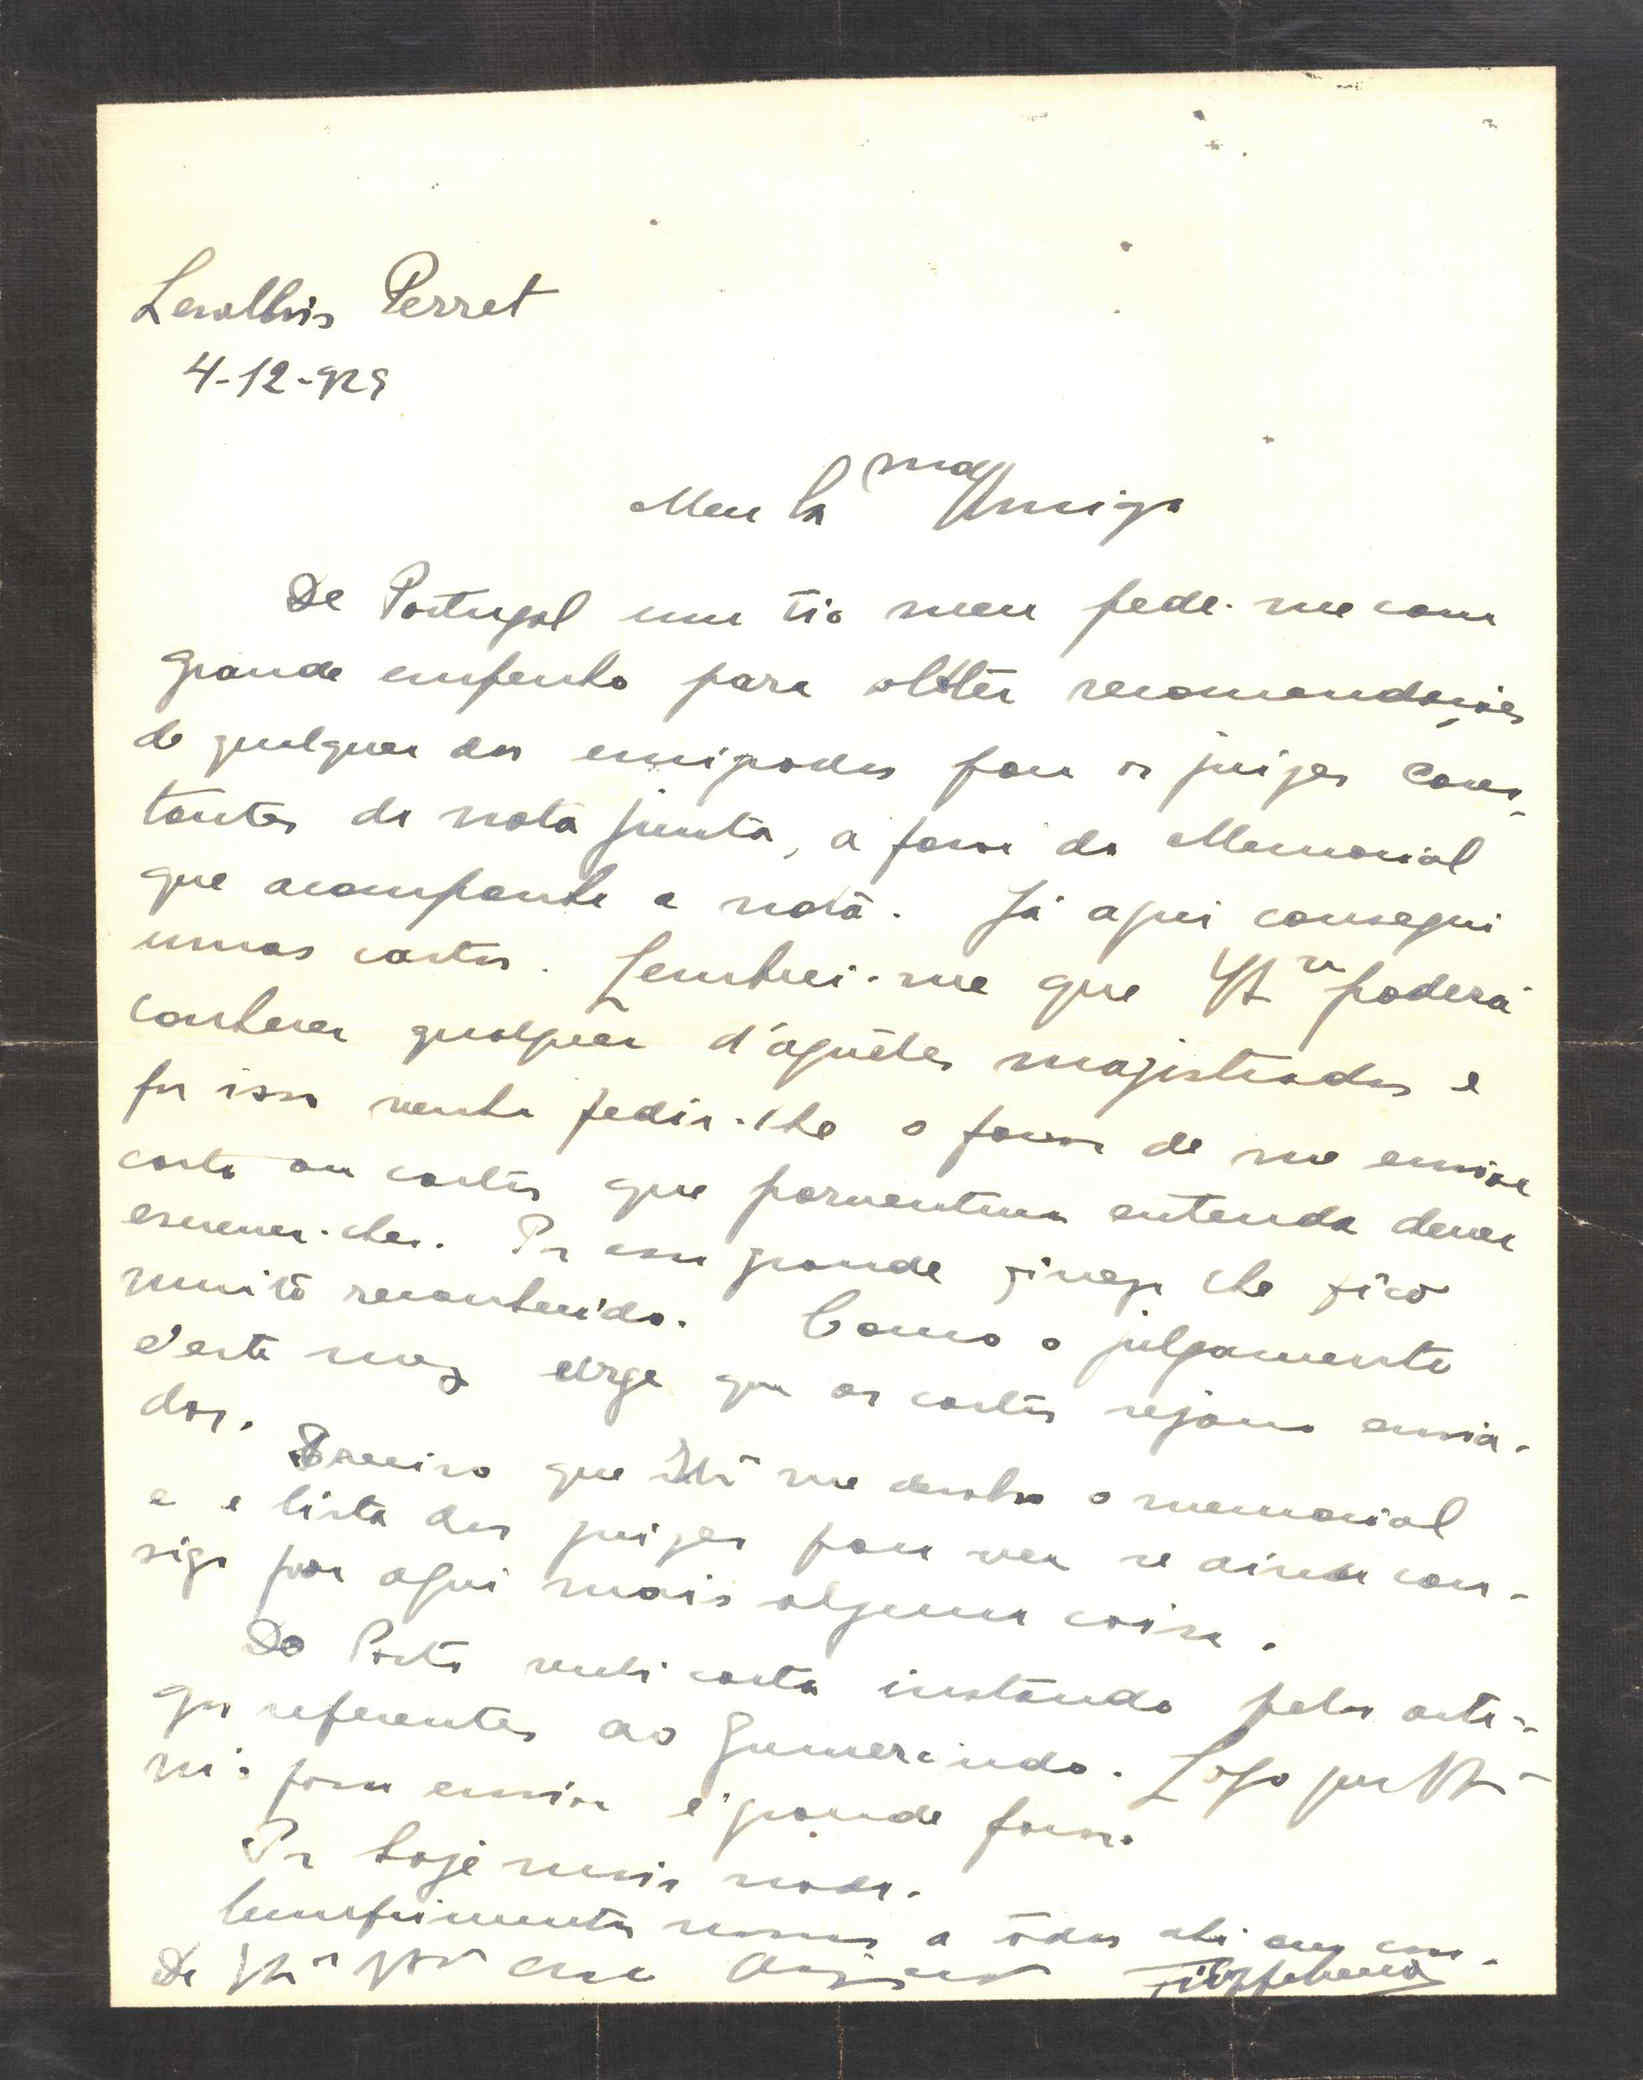 Levallois Perret
4-12-929
Meu Ca^mo Amigo
De Portugal um tio meu pede-me com
grande empenho para obter recomendações
de qualquer dos emigrados para os juizes cons-
tantes da nota junta, a favor do Memorial
que acompanha a nota. Já aqui consegui
umas cartas. Lembrei-me que poderá
conhecer qualquer d'aquêles magistrados e
por isso venho pedir-lhe o favor de me enviar
carta ou cartas que porventura entenda dever
escrever-lhes. Por essa grande fineza lhe fico
muito reconhecido. Como o julgamento
é este mez urge que as cartas sejam envia-
das.
Preciso que me devolva o memorial
e a lista dos juizes para ver se ainda con-
sigo por aqui mais alguma coisa.
Do Porto recebi carta instando pelos arti-
gos referentes ao Gumercindo. Logo que
m'os possa enviar é grande favor.
Por hoje mais nada.
Cumprimentos nossos a todos ahi
De